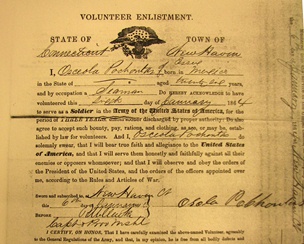 VOLUNTEER ENLISTMENT.
STATE OF TOWN OF
Connecticut New Haven
I, Osceola born in
in the State of aged
and by occupation a Seaman Do HEREBY ACKNOWLEDGE to have
volunteered this Sixth day of January 1864
to serve as a Soldier in the Army of the United States of America, for the
period of THREE YEARS unless sooner discharged by proper authority: Do also
agree to accept such bounty, pay, rations, and clothing, as are, or may be, estab-
lished by law for volunteers. And I, do
solemnly swear, that I will bear true faith and allegiance to the United States
of America, and that I will serve them honestly and faithfully against all their
enemies or opposers whomsoever; and that I will observe and obey the orders of
the President of the United States, and the orders of the officers appointed over
me, according to the Rules and Articles of War.
Sworn and subscribed to, at New Haven Ct
this 6th day of January
BEFORE
I CERTIFY, ON HONOR, That I have carefully examined the above-named Volunteer, agreeably
to the General Regulations of the Army, and that, in my opinion, he is free from all bodily defects